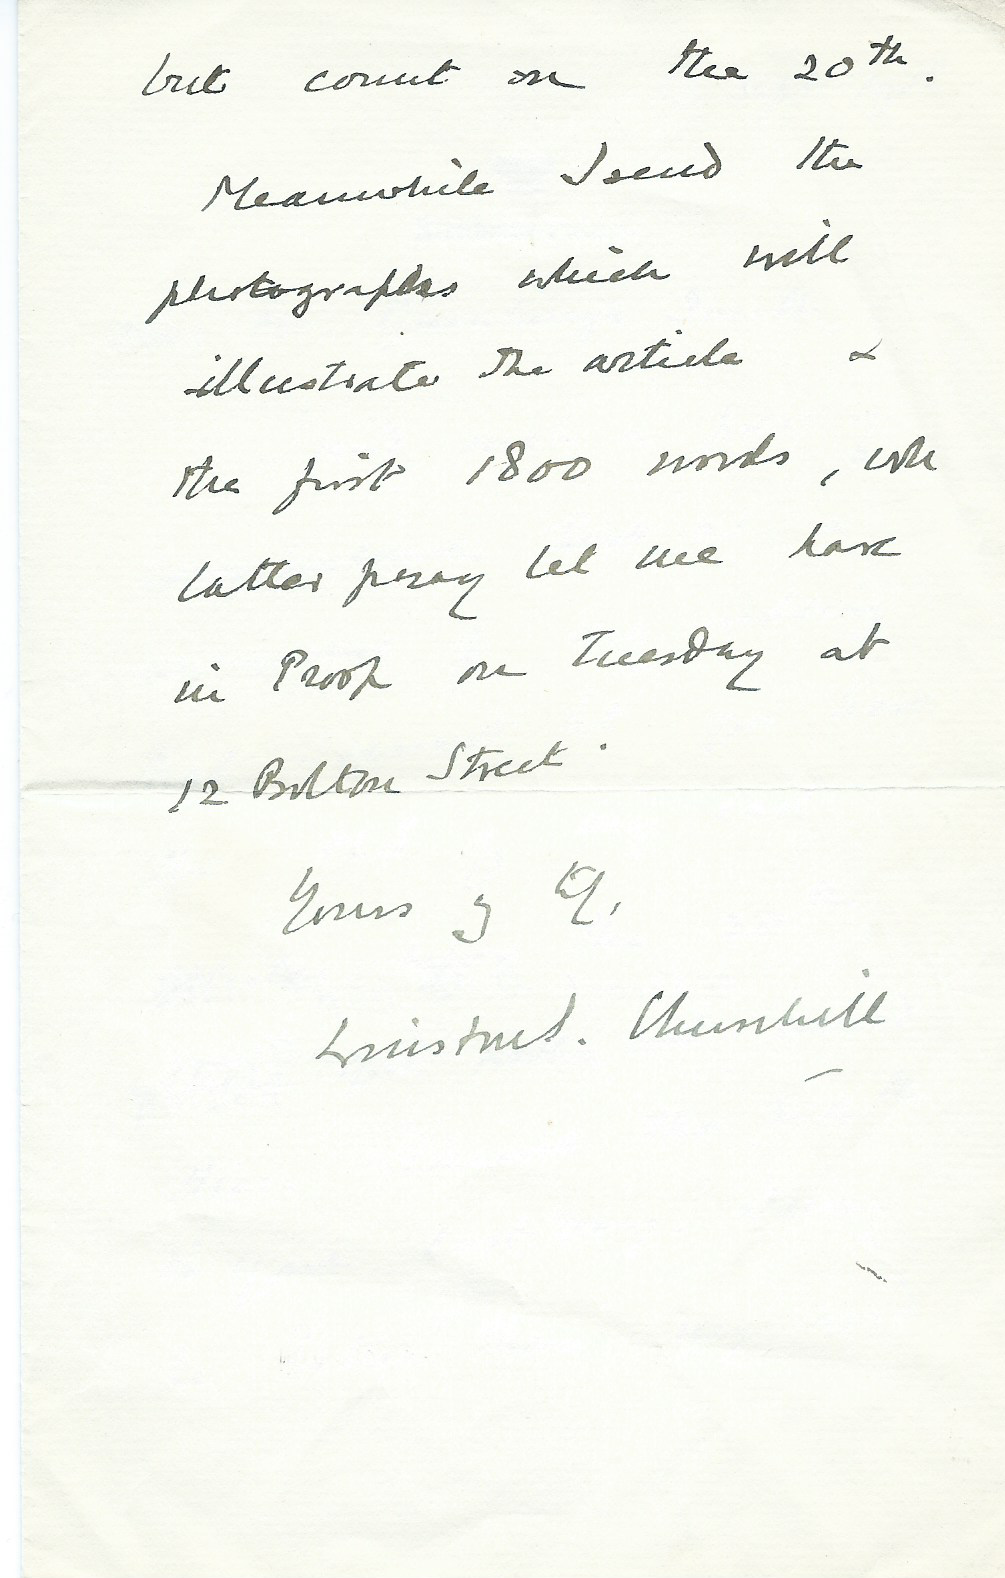 but count on the 20th.
Meanwhile I send the
photographs which will
illustrate the article &
the first 1800 words, wh
latter pray let me have
in Proof on Tuesday at
12 Bolton Street.
Yours
Winston S. Churchill